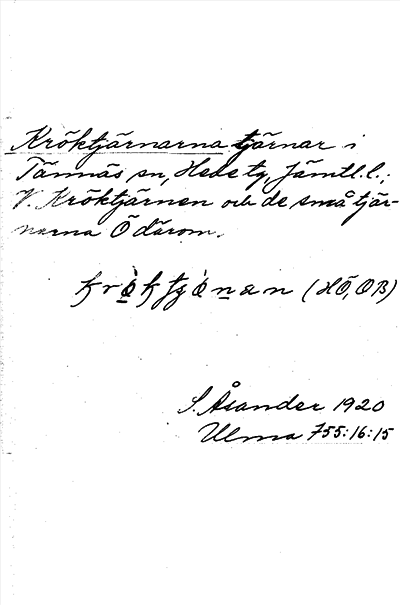 Kröktjärnarna tjärnar i
Tännäs sn, Hede tg, Jämtl. l.;
V. Kröktjärnen och de små tjär-
narna Ö därom.
(HÖ, OB)
S. Åsander 1920
Ulma 755:16:15